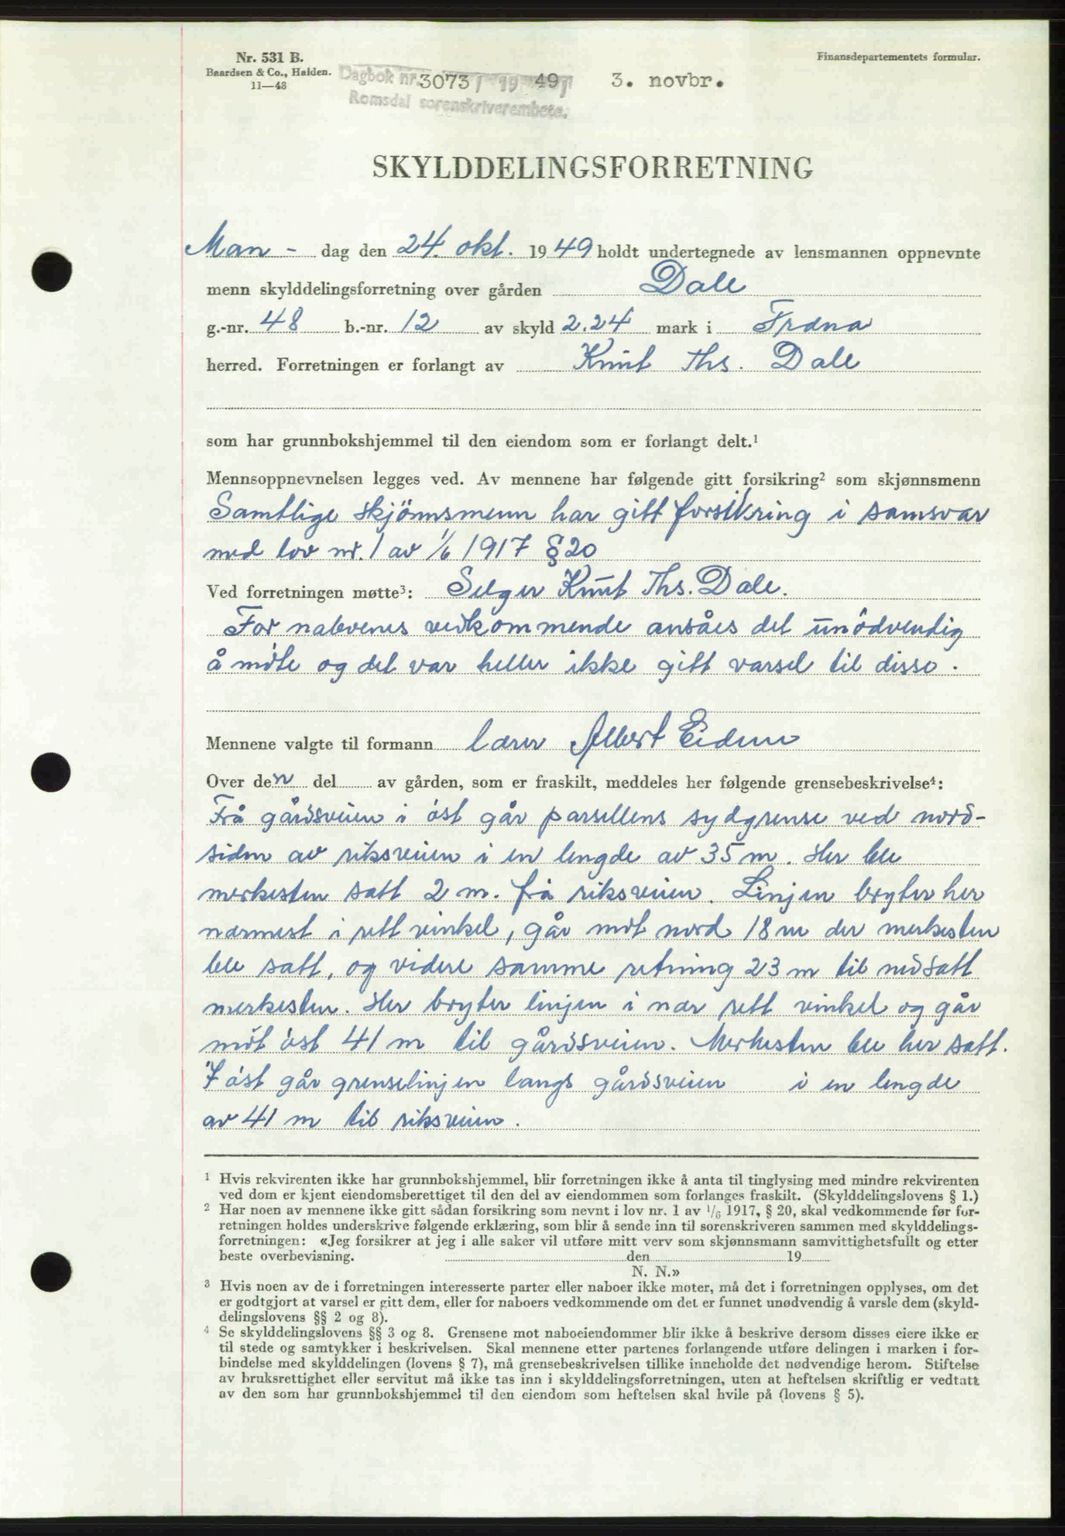 Nr. 531 B.
Baardsen & Co., Halden.
11—48
Finansdepartementets formular.
Dagbok nr. 3073 / 19 49 3. novbr.
Romsdal sorenskriverembete.
SKYLDDELINGSFORRETNING
Man - dag den 24. okt. 1949 holdt undertegnede av lensmannen oppnevnte
menn skylddelingsforretning over gården Dale
g.-nr. 48 b.-nr. 12 av skyld 2.24 mark i Fræna
herred. Forretningen er forlangt av Knut Ths. Dale
som har grunnbokshjemmel til den eiendom som er forlangt delt.¹
Mennsoppnevnelsen legges ved. Av mennene har følgende gitt forsikring² som skjønnsmenn
Samtlige skjönnsmenn har gitt forsikring i samsvar
med lov nr. 1 av 1/6 1917 § 20
Ved forretningen møtte³: Selger Knut Ths. Dale.
For naboenes vedkommende ansåes det unödvendig
å möte og det var heller ikke gitt varsel til disse.
Mennene valgte til formann lærer Albert Eidem
Over den del av gården, som er fraskilt, meddeles her følgende grensebeskrivelse⁴:
Frå gårdsveien i öst går parsellens sydgrense ved nord-
siden av riksveien i en lengde av 35 m. Her ble
merkesten satt 2 m. frå riksveien. Linjen bryter her
nærmest i rett vinkel, går mot nord 18 m der merkesten
ble satt, og videre samme retning 23 m til nedsatt
merkesten. Her bryter linjen i nær rett vinkel og går
mot öst 41 m til gårdsveien. Merkesten ble her satt.
I öst går grenselinjen langs gårdsveien i en lengde
av 41 m til riksveien.
¹ Hvis rekvirenten ikke har grunnbokshjemmel, blir forretningen ikke å anta til tinglysing med mindre rekvirenten
ved dom er kjent eiendomsberettiget til den del av eiendommen som forlanges fraskilt. (Skylddelingslovens § 1.)
² Har noen av mennene ikke gitt sådan forsikring som nevnt i lov nr. 1 av 1/6 1917, § 20, skal vedkommende før for-
retningen holdes underskrive følgende erklæring, som blir å sende inn til sorenskriveren sammen med skylddelings-
forretningen: «Jeg forsikrer at jeg i alle saker vil utføre mitt verv som skjønnsmann samvittighetsfullt og etter
beste overbevisning. den 19
N. N.»
³ Hvis noen av de i forretningen interesserte parter eller naboer ikke møter, må det i forretningen opplyses, om det
er godtgjort at varsel er gitt dem, eller for naboers vedkommende om det er funnet unødvendig å varsle dem (skyld-
delingslovens §§ 2 og 8).
⁴ Se skylddelingslovens §§ 3 og 8. Grensene mot naboeiendommer blir ikke å beskrive dersom disses eiere ikke er
til stede og samtykker i beskrivelsen. Skal mennene etter partenes forlangende utføre delingen i marken i for-
bindelse med skylddelingen (lovens § 7), må grensebeskrivelsen tillike inneholde det nødvendige herom. Stiftelse
av bruksrettighet eller servitut må ikke tas inn i skylddelingsforretningen, uten at heftelsen skriftlig er vedtatt
av den som har grunnbokshjemmel til den eiendom som heftelsen skal hvile på (lovens § 5).